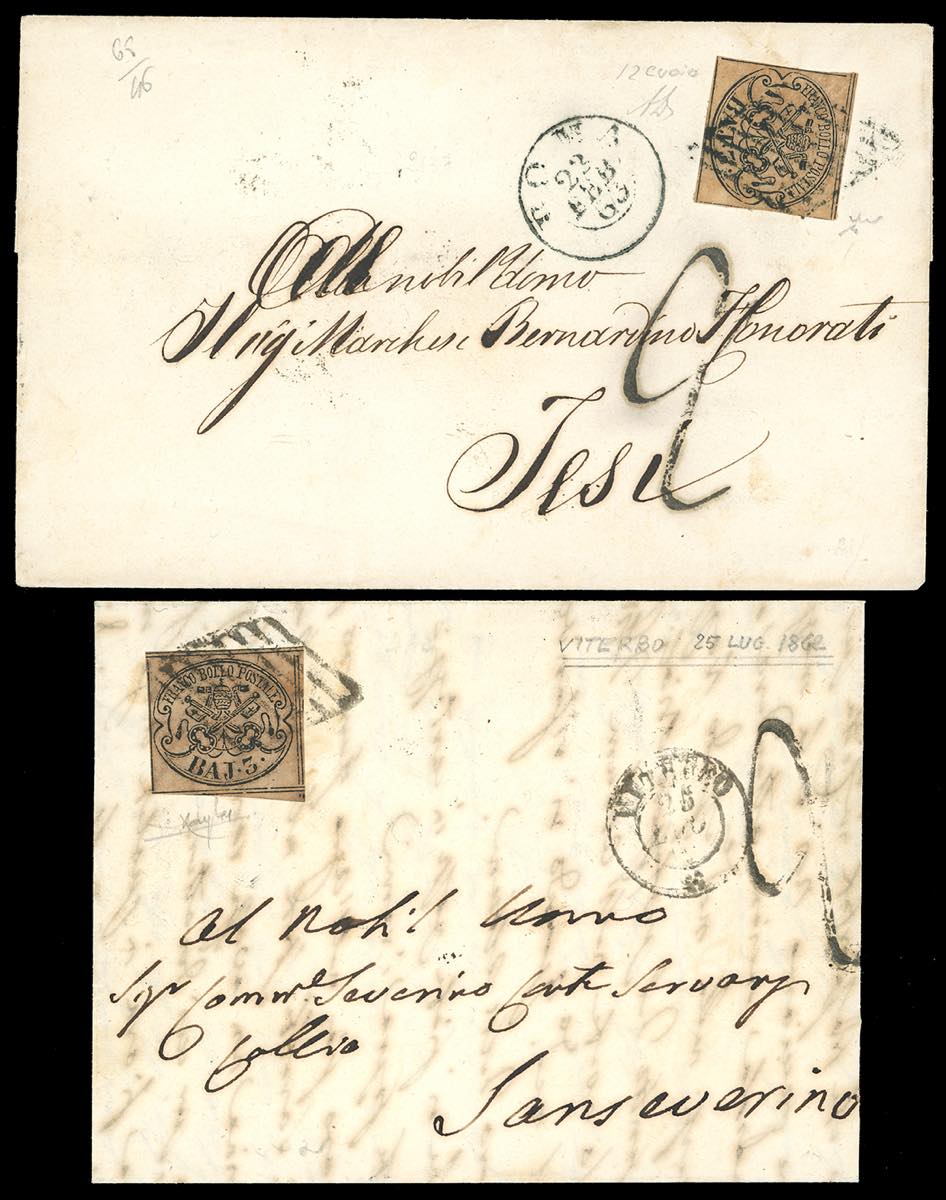 65
46
12 cuoio
FRANCO BOLLO POSTALE
ROMA
22
FEB
63
nobil Uomo
Il Sig Marchese Bernardino Honorati
2
Jesi
VITERBO 25 LUG. 1862
FRANCO BOLLO POSTALE
BAJ·3·
VITERBO
25
LUG
2
Al Nobil Uomo
Sigr Severino Servanzi
Collio
Sanseverino